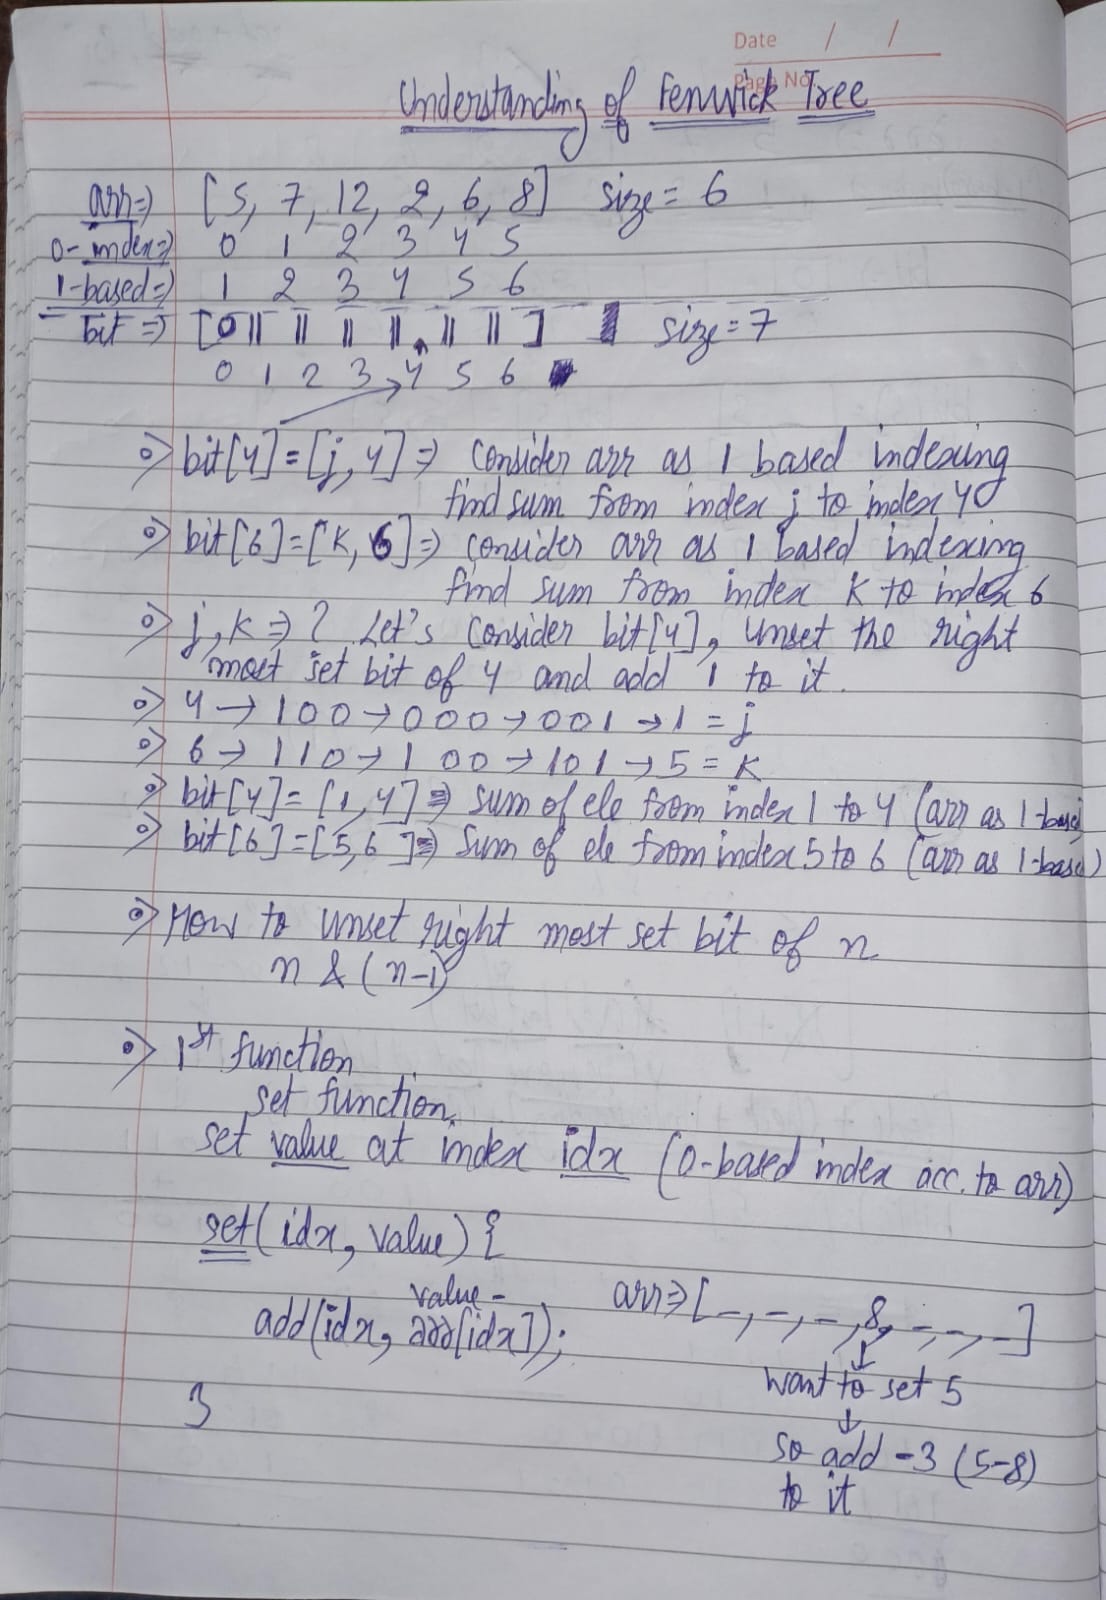 Date / /
Page No.
Understanding of Fenwick Tree
arr=> [5, 7, 12, 2, 6, 8] size = 6
0-index=> 0 1 2 3 4 5
1-based=> 1 2 3 4 5 6
bit => [0|| || || || || || ] size = 7
0 1 2 3 4 5 6
=> bit[4] = [j, 4] => Consider arr as 1 based indexing
find sum from index j to index 4
=> bit[6] = [K, 6] => consider arr as 1 based indexing
find sum from index K to index 6
=> j, K => ? Let's consider bit[4], unset the right
most set bit of 4 and add 1 to it.
=> 4 → 100 → 000 → 001 → 1 = j
=> 6 → 110 → 100 → 101 → 5 = K
=> bit[4] = [1, 4] => sum of ele from index 1 to 4 (arr as 1-based
=> bit[6] = [5, 6] => Sum of ele from index 5 to 6 (arr as 1-based)
=> How to unset right most set bit of n
n & (n-1)
=> 1st function
set function
set value at index idx (0-based index acc. to arr)
set(idx, value) {
value -
add(idx, arr[idx]); arr=> [-, -, -, 8, -, -, -]
↓
want to set 5
}
↓
so add -3 (5-8)
to it